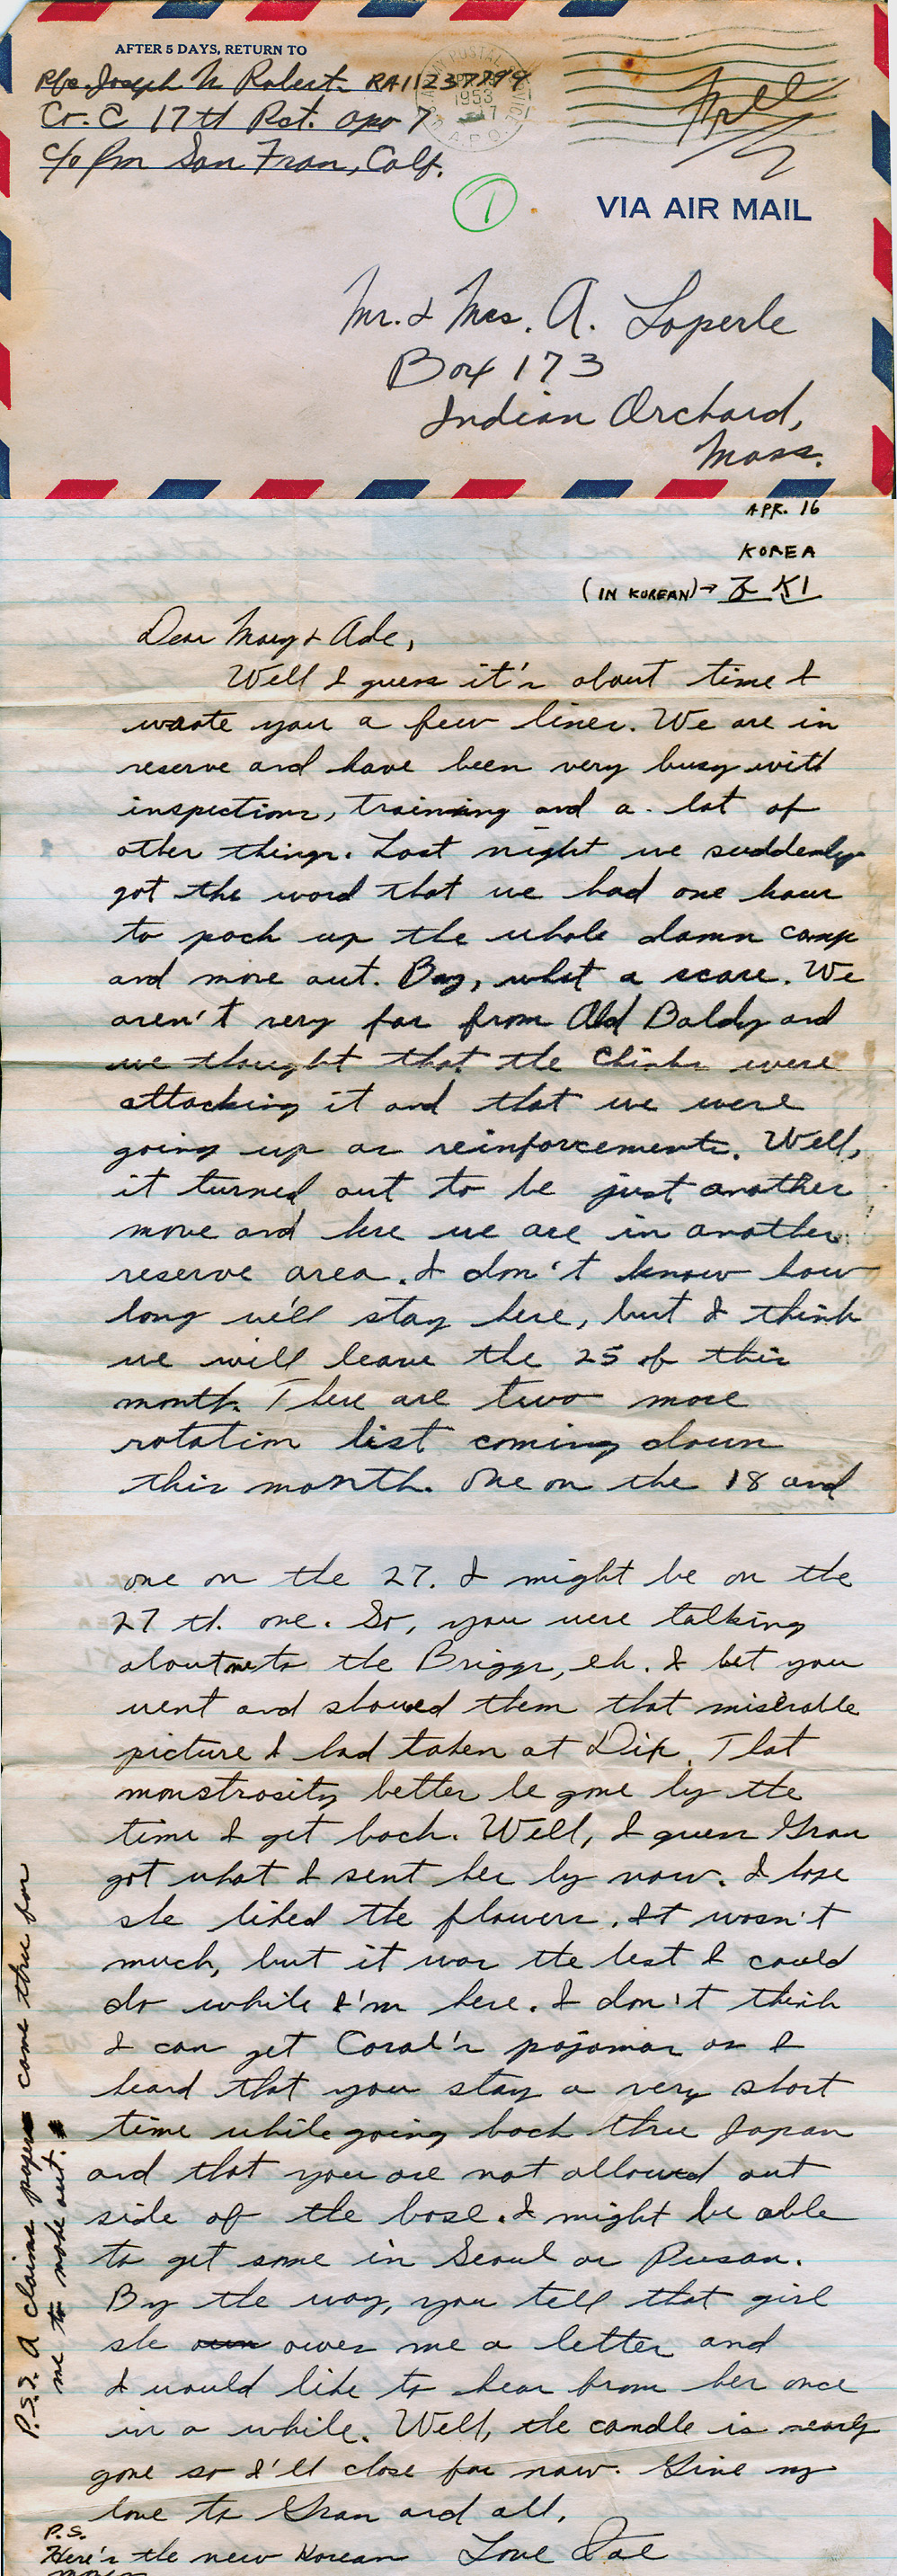 AFTER 5 DAYS, RETURN TO
Pfc. Joseph N. Robert RA11237799
Co. C 17th Rct. apo 7
c/o pm San Fran, Calf.
1953
A.P.O.
Free
1
VIA AIR MAIL
Mr. & Mrs. A. Loperle
Box 173
Indian Orchard,
Mass.
APR. 16
KOREA
(IN KOREAN)→
Dear Mary & Ade,
Well I guess it's about time I
wrote you a few lines. We are in
reserve and have been very busy with
inspections, training and a lot of
other things. Last night we suddenly
got the word that we had one hour
to pack up the whole damn camp
and move out. Boy, what a scare. We
aren't very far from Old Baldy and
we thought that the Chinks were
attacking it and that we were
going up as reinforcements. Well,
it turned out to be just another
move and here we are in another
reserve area. I don't know how
long we'll stay here, but I think
we will leave the 25 of this
month. There are two more
rotation list coming down
this month. One on the 18 and
one on the 27. I might be on the
27 th. one. So, you were talking
about me to the Briggs, eh. I bet you
went and showed them that miserable
picture I had taken at Dix. That
monstrosity better be gone by the
time I get back. Well, I guess Gran
got what I sent her by now. I hope
she liked the flowers. It wasn't
much, but it was the best I could
do while I'm here. I don't think
I can get Coral's pajamas as I
heard that you stay a very short
time while going back thru Japan
and that you are not allowed out
side of the base. I might be able
to get some in Seoul or Pusan.
By the way, you tell that girl
she owes me a letter and
I would like to hear from her once
in a while. Well, the candle is nearly
gone so I'll close for now. Give my
love to Gran and all.
Love Joe
P.S.
Here's the new Korean
money
P.S.S. A claims papers came thru for
me to make out.